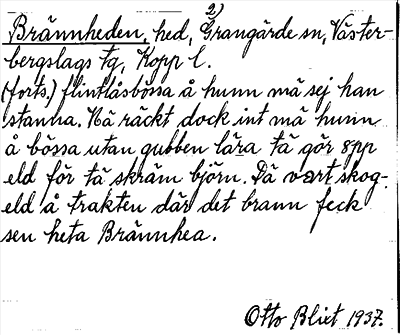 2)
Brännheden, hed, Grangärde sn, Väster-
bergslags tg, Kopp l.
(forts.) flintlåsbössa å hunn mä sej han
stanna. Hä räckt dock int mä hunn
å bössa utan gubben lära tä gör opp
eld för tä skräm björn. Dä vart skog-
eld å trakten där det brann feck
sen heta Brännhea.
Otto Blixt 1937.